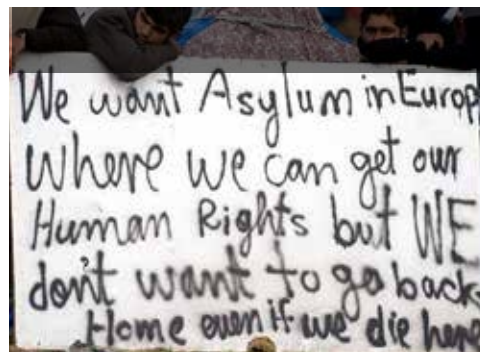 We want Asylum in Europ
where we can get our
Human Rights but WE
don't want to go back
Home even if we die here